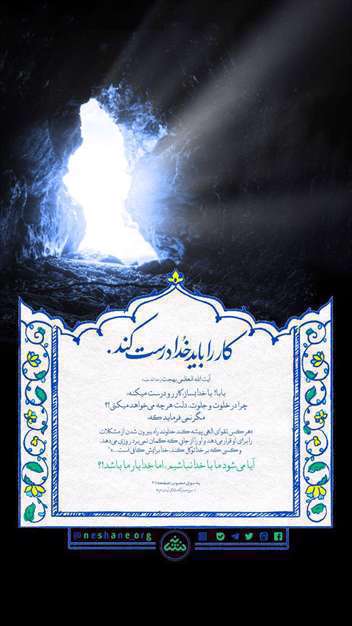 کار را باید خدا درست کند.
آیت الله العظمی بهجت
بابا! با خدا بساز کار رو درست میکنه،
چرا در خلوت و جلوت، دلت هر چه می‌خواهد میکنی؟!
مگر نمی‌فرماید که:
«هر کس تقوای الهی پیشه کند، خداوند راه بیرون شدن از مشکلات
را برای او قرار می‌دهد و او را از جایی که گمان نمی‌برد روزی می‌دهد.
و کسی که بر خدا توکل کند، خدا برایش کافی است...»
آیا می‌شود ما با خدا نباشیم، اما خدا یار ما باشد؟!
@neshane.org